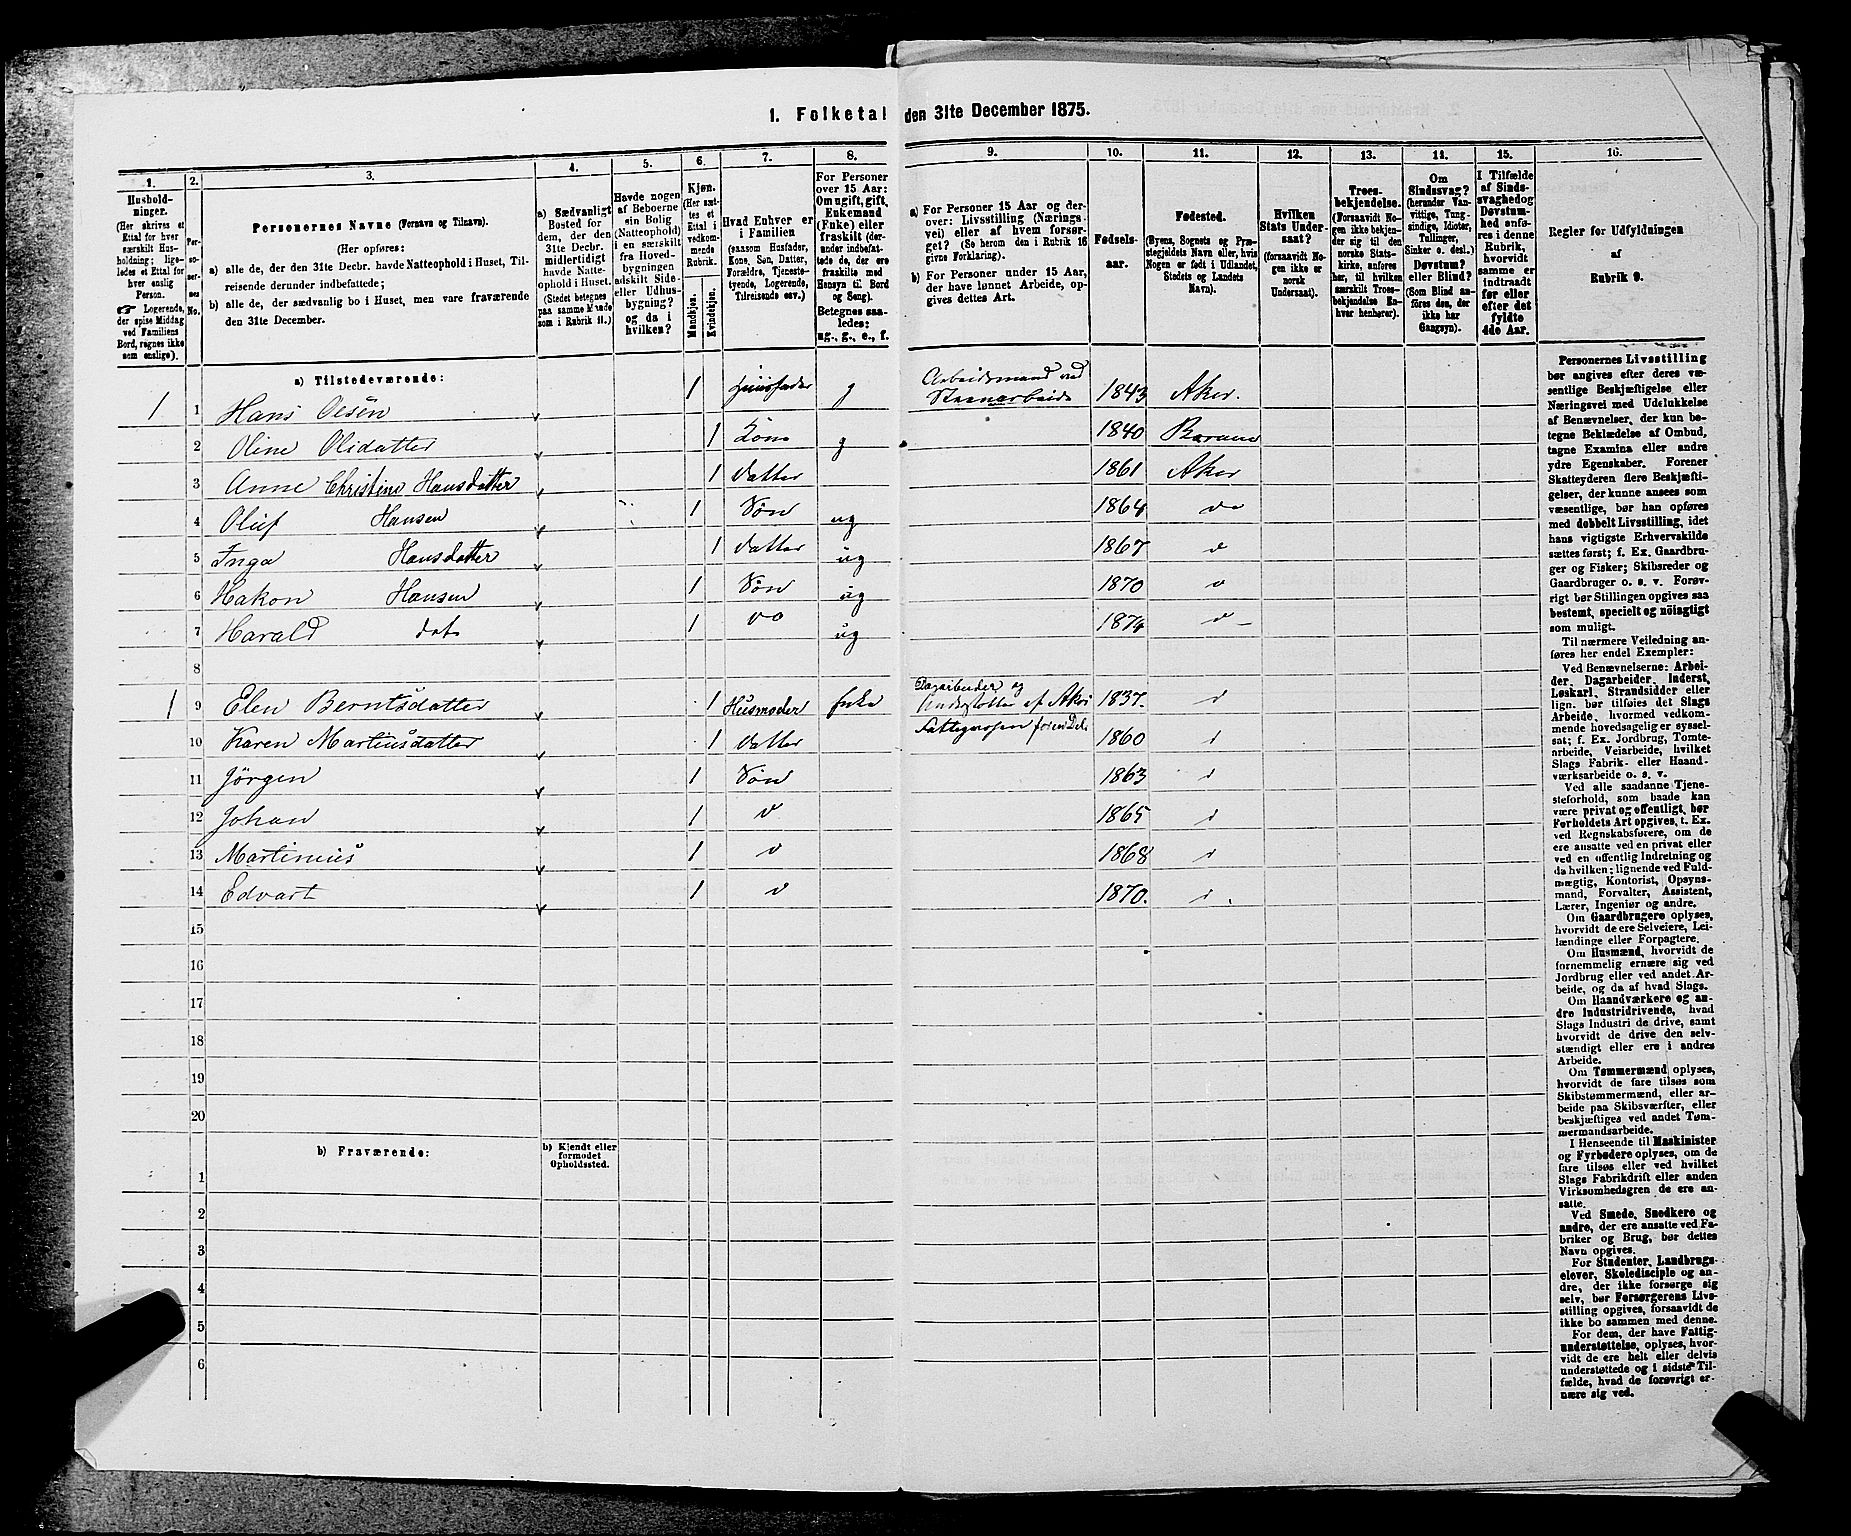 1. Folketal den 31te December 1875.
1. 2. 3. 4. 5. 6. 7. 8. 9. 10. 11. 12. 13. 14. 15. 16.
Hushold-
ninger.
(Her skrives et
Ettal for hver
særskilt Hus-
holdning; lige-
ledes et Ettal for
hver enslig
Person.
☞ Logerende,
der spise Middag
ved Familiens
Bord, regnes ikke
som enslige).
Per-
so-
ner-
nes
No.
Personernes Navne (Fornavn og Tilnavn).
(Her opføres:
a) alle de, der den 31te Decbr. havde Natteophold i Huset, Til-
reisende derunder indbefattede;
b) alle de, der sædvanlig bo i Huset, men vare fraværende
den 31te December.
a) Sædvanligt
Bosted for
dem, der den
31te Decbr.
midlertidigt
havde Natte-
ophold i Huset.
(Stedet betegnes
paa samme Maade
som i Rubrik 11.)
Havde nogen
af Beboerne
sin Bolig
(Natteophold)
i en særskilt
fra Hoved-
bygningen
adskilt Side-
eller Udhus-
bygning?
og da i
hvilken?
Kjøn.
(Her sæt-
tes et
Ettal i
vedkom-
mende
Rubrik.
Mandkjøn.
Kvindekjøn.
Hvad Enhver er
i Familien
(saasom Husfader,
Kone, Søn, Datter,
Forældre, Tjeneste-
tyende, Logerende,
Tilreisende osv.)
For Personer
over 15 Aar:
Om ugift, gift,
Enkemand
(Enke) eller
fraskilt (der-
under indbefat-
tede de, der ere
fraskilte med
Hensyn til Bord
og Seng).
Betegnes saa-
ledes:
ug., g., e., f.
a) For Personer 15 Aar og der-
over: Livsstilling (Nærings-
vei) eller af hvem forsør-
get? (Se herom den i Rubrik 16
givne Forklaring).
b) For Personer under 15 Aar,
der have lønnet Arbeide, op-
gives dettes Art.
Fødsels-
aar.
Fødested.
(Byens, Sognets og Præ-
stegjeldets Navn eller, hvis
Nogen er født i Udlandet,
Stedets og Landets
Navn).
Hvilken
Stats Under-
saat?
(forsaavidt No-
gen ikke er
norsk
Undersaat).
Troes-
bekjendelse.
(Forsaavidt No-
gen ikke bekjen-
der sig til den
norske Stats-
kirke, anføres
her, til hvilken
særskilt Troes-
bekjendelse En-
hver henhører).
Om
Sindssvag?
(herunder Van-
vittige, Tung-
sindige, Idioter,
Tullinger,
Sinker o. desl.)
Døvstum?
eller Blind?
(Som Blind an-
føres den, der
ikke har
Gangsyn).
I Tilfælde
af Sinds-
svaghed og
Døvstum-
hed anfø-
res i denne
Rubrik,
hvorvidt
samme er
indtraadt
før eller
efter det
fyldte
4de Aar.
Regler for Udfyldningen
af
Rubrik 9.
a) Tilstedeværende:
1 1 Hans Olsen 1 Huusfader g Arbeidsmand ved Steenarbeide 1843 Aker.
2 Oline Olsdatter 1 Kone g 1840 Bærum
3 Anne Christine Hansdatter 1 datter 1861 Aker
4 Oluf Hansen 1 Søn ug 1864 do
5 Inga Hansdatter 1 datter ug 1867 d
6 Hakon Hansen 1 Søn ug 1870 d
7 Harald do 1 do ug 1874 d
8
1 9 Elen Berntsdatter 1 Husmoder enke Dagarbeider og Understøttes af Akers Fattigvæsen for en Del 1837. d
10 Karen Martinsdatter 1 datter 1860 d
11 Jörgen 1 Søn 1863 d
12 Johan 1 d 1865 d
13 Martinius 1 d 1868 d
14 Edvart 1 d 1870. d
15
16
17
18
19
20
b) Fraværende:
b) Kjendt eller
formodet
Opholdssted.
1
2
3
4
5
6
Personernes Livsstilling
bør angives efter deres væ-
sentlige Beskjæftigelse eller
Næringsvei med Udelukkelse
af Benævnelser, der kun be-
tegne Beklædelse af Ombud,
tagne Examina eller andre
ydre Egenskaber. Forener
Skatteyderen flere Beskjæfti-
gelser, der kunne ansees som
væsentlige, bør han opføres
med dobbelt Livsstilling, idet
hans vigtigste Erhvervskilde
sættes først; f. Ex. Gaardbru-
ger og Fisker; Skibsreder og
Gaardbruger o. s. v. Forøv-
rigt bør Stillingen opgives saa
bestemt, specielt og nøiagtigt
som muligt.
Til nærmere Veiledning an-
føres her endel Exempler:
Ved Benævnelserne: Arbei-
der, Dagarbeider, Inderst,
Løskarl, Strandsidder eller
lign. bør tilføies det Slags
Arbeide, hvormed vedkom-
mende hovedsagelig er syssel-
sat; f. Ex. Jordbrug, Tomte-
arbeide, Veiarbeide, hvilket
Slags Fabrik- eller Haand-
værksarbeide o. s. v.
Ved alle saadanne Tjene-
steforhold, som baade kan
være privat og offentligt, bør
Forholdets Art opgives, t. Ex.
ved Regnskabsførere, om de
ere ansatte ved en privat eller
ved en offentlig Indretning og
da hvilken; lignende ved Fuld-
mægtig, Kontorist, Opsyns-
mand, Forvalter, Assistent,
Lærer, Ingeniør og andre.
Om Gaardbrugere oplyses,
hvorvidt de ere Selveiere, Lei-
lændinge eller Forpagtere.
Om Husmænd, hvorvidt de
fornemmelig ernære sig ved
Jordbrug eller ved andet Ar-
beide, og da af hvad Slags.
Om Haandværkere og an-
dre Industridrivende, hvad
Slags Industri de drive, samt
hvorvidt de drive den selv-
stændigt eller ere i andres
Arbeide.
Om Tømmermænd oplyses,
hvorvidt de fare tilsøs som
Skibstømmermænd, eller ar-
beide paa Skibsværfter, eller
beskjæftiges ved andet Tøm-
mermandsarbeide.
I Henseende til Maskinister
og Fyrbødere oplyses, om de
fare tilsøs eller ved hvilket
Slags Fabrikdrift eller anden
Virksomhedsgren de ere an-
satte.
Ved Smede, Snedkere og
andre, der ere ansatte ved Fa-
briker og Brug, bør dettes
Navn opgives.
For Studenter, Landbrugs-
elever, Skoledisciple og an-
dre, der ikke forsørge sig
selv, bør Forsørgerens Livs-
stilling opgives, forsaavidt de
ikke bo sammen med denne.
For dem, der have Fattig-
understøttelse, oplyses, hvor-
vidt de ere helt eller delvis
understøttede og i sidste Til-
fælde, hvad de forøvrigt er-
nære sig ved.